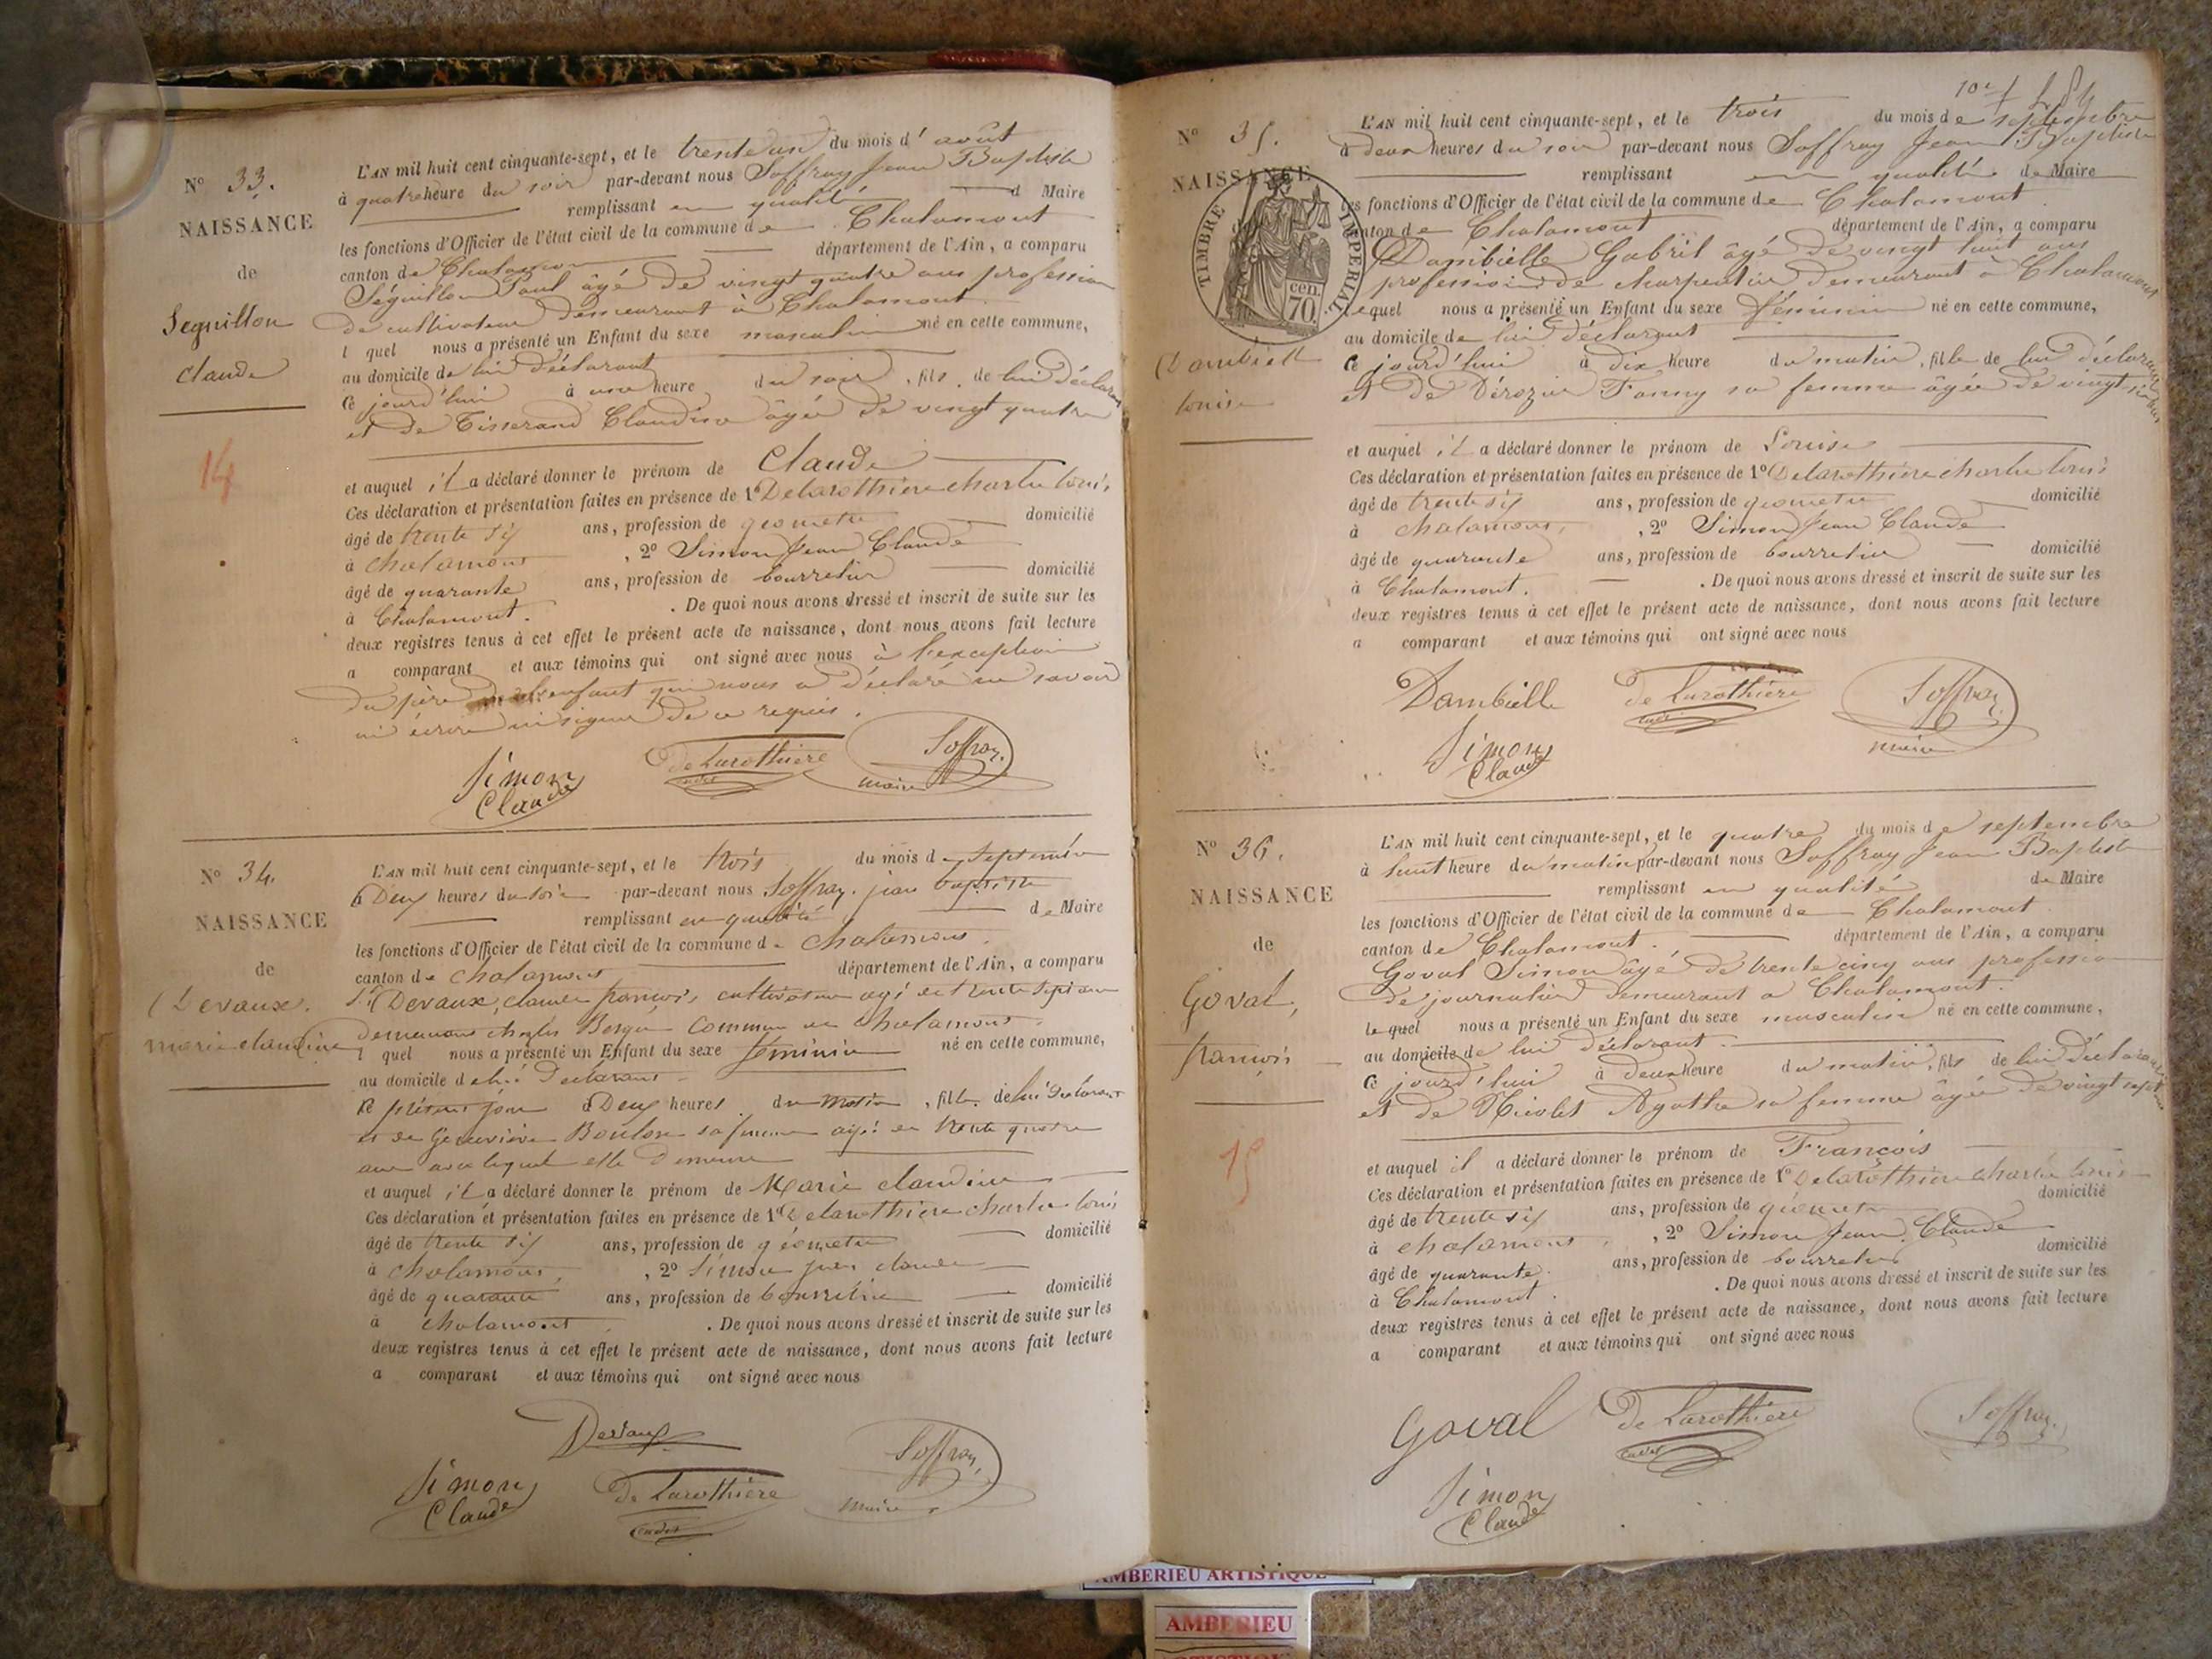 N° 33.
NAISSANCE
de
Seguillon
Claude
14
L'AN mil huit cent cinquante-sept, et le trente un du mois d' août
à quatre heure du soir par-devant nous Soffray Jean Baptiste
remplissant en qualité d Maire
les fonctions d'Officier de l'état civil de la commune de Chalamont
canton de Chalamont département de l'Ain, a comparu
Séguillon Paul âgé de vingt quatre ans profession
de cultivateur demeurant à Chalamont
l quel nous a présenté un Enfant du sexe masculin né en cette commune,
au domicile de lui déclarant
Ce jourd'hui à une heure du soir, fils de lui déclarant
et de Tisserand Claudine âgée de vingt quatre
et auquel il a déclaré donner le prénom de Claude
Ces déclaration et présentation faites en présence de 1° Delarothiere charles louis
âgé de trente six ans, profession de géometre domicilié
à chalamont , 2° Simon Jean Claude
âgé de quarante ans, profession de bourrelier domicilié
à Chalamont. . De quoi nous avons dressé et inscrit de suite sur les
deux registres tenus à cet effet le présent acte de naissance, dont nous avons fait lecture
a comparant et aux témoins qui ont signé avec nous à l'exception
du père de l'enfant qui nous a déclaré ne savoir
ni écrire ni signer de ce requis.
Simon Claude
de Larothiere cadet
Soffray maire
N° 34.
NAISSANCE
de
Devaux.
marie claudine
L'AN mil huit cent cinquante-sept, et le trois du mois de Septembre
à Deux heures du soir par-devant nous Soffray jean baptiste
remplissant en qualité de Maire
les fonctions d'Officier de l'état civil de la commune de chalamont.
canton de chalamont département de l'Ain, a comparu
Devaux, claude francois, cultivateur agé de trente sept ans
demeurant commune de chalamont.
l quel nous a présenté un Enfant du sexe féminin né en cette commune,
au domicile de lui Déclarant
le présent jour à Deux heures du matin, fille de lui Déclarant
et de Geneviève Boulon sa femme agée de trente quatre
ans avec lequel elle Demeure
et auquel il a déclaré donner le prénom de Marie claudine
Ces déclaration et présentation faites en présence de 1° Delarothiere charles louis
âgé de trente six ans, profession de géometre domicilié
à chalamont, , 2° Simon jean claude
âgé de quarante ans, profession de bourrelier domicilié
à chalamont . De quoi nous avons dressé et inscrit de suite sur les
deux registres tenus à cet effet le présent acte de naissance, dont nous avons fait lecture
a comparant et aux témoins qui ont signé avec nous
Devaux
Simon Claude
De Larothiere cadet
Soffray maire
N° 35.
NAISSANCE
TIMBRE IMPERIAL
cen. 70.
Dambielle
louise
L'AN mil huit cent cinquante-sept, et le trois du mois de septembre
à deux heures du soir par-devant nous Soffray Jean Baptiste
remplissant en qualité de Maire
les fonctions d'Officier de l'état civil de la commune de Chalamont
canton de Chalamont département de l'Ain, a comparu
Dambielle Gabril âgé de vingt huit ans
profession de charpentier demeurant à Chalamont
lequel nous a présenté un Enfant du sexe féminin né en cette commune,
au domicile de lui déclarant
Ce jourd'hui à dix heure du matin, fille de lui déclarant
et de Dérozier Fanny sa femme âgée de vingt six ans
et auquel il a déclaré donner le prénom de Louise
Ces déclaration et présentation faites en présence de 1° Delarothiere charles louis
âgé de trente six ans, profession de géometre domicilié
à chalamont, , 2° Simon Jean Claude
âgé de quarante ans, profession de bourrelier domicilié
à Chalamont. . De quoi nous avons dressé et inscrit de suite sur les
deux registres tenus à cet effet le présent acte de naissance, dont nous avons fait lecture
a comparant et aux témoins qui ont signé avec nous
Dambielle
de Larothiere cadet
Soffray maire
Simon Claude
N° 36.
NAISSANCE
de
Goval,
francois
15
L'AN mil huit cent cinquante-sept, et le quatre du mois de septembre
à huit heure du matin par-devant nous Soffray Jean Baptiste
remplissant en qualité de Maire
les fonctions d'Officier de l'état civil de la commune de Chalamont
canton de Chalamont. département de l'Ain, a comparu
Goval Simon âgé de trente cinq ans profession
de journalier demeurant a Chalamont.
lequel nous a présenté un Enfant du sexe masculin né en cette commune,
au domicile de lui déclarant.
Ce jourd'hui à deux heure du matin, fils de lui déclarant
et de Nicolet Agathe sa femme âgée de vingt sept ans
et auquel il a déclaré donner le prénom de François
Ces déclaration et présentation faites en présence de 1° Delarothiere charles louis
âgé de trente six ans, profession de géometre domicilié
à chalamont , 2° Simon Jean Claude
âgé de quarante. ans, profession de bourrelier domicilié
à Chalamont. . De quoi nous avons dressé et inscrit de suite sur les
deux registres tenus à cet effet le présent acte de naissance, dont nous avons fait lecture
a comparant et aux témoins qui ont signé avec nous
Goval
De Larothiere cadet
Soffray
Simon Claude
AMBERIEU ARTISTIQUE
AMBERIEU
ARTISTIQUE